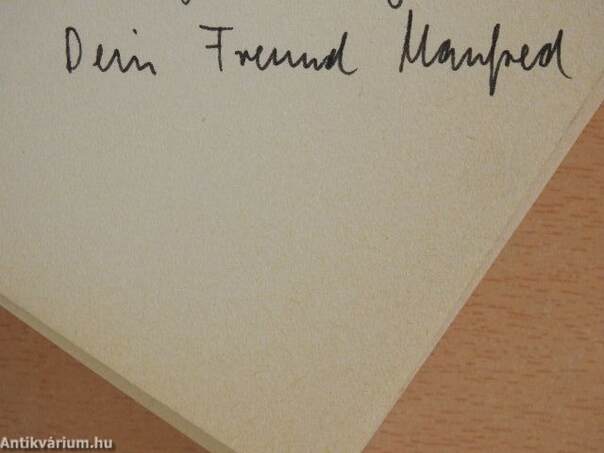 Dein Freund Manfred
Antikvárium.hu